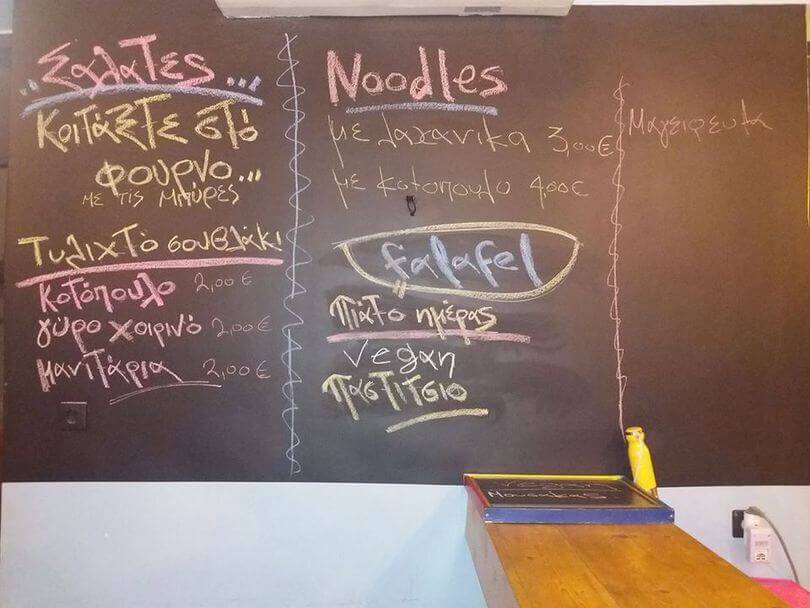 ..Σαλάτες...
Κοιτάξτε στό
φουρνο...
με τις μπύρες
Τυλιχτό σουβλάκι
Κοτόπουλο 2,00€
γύρο χοιρινό 2,00€
μανιτάρια 2,00€
Noodles
με λαχανικα 3,00€
με κοτοπουλο 4,00€
falafel
Πιάτο ημέρας
vegan
παστιτσιο
Μαγειρευτα
vegan
Μουσακας